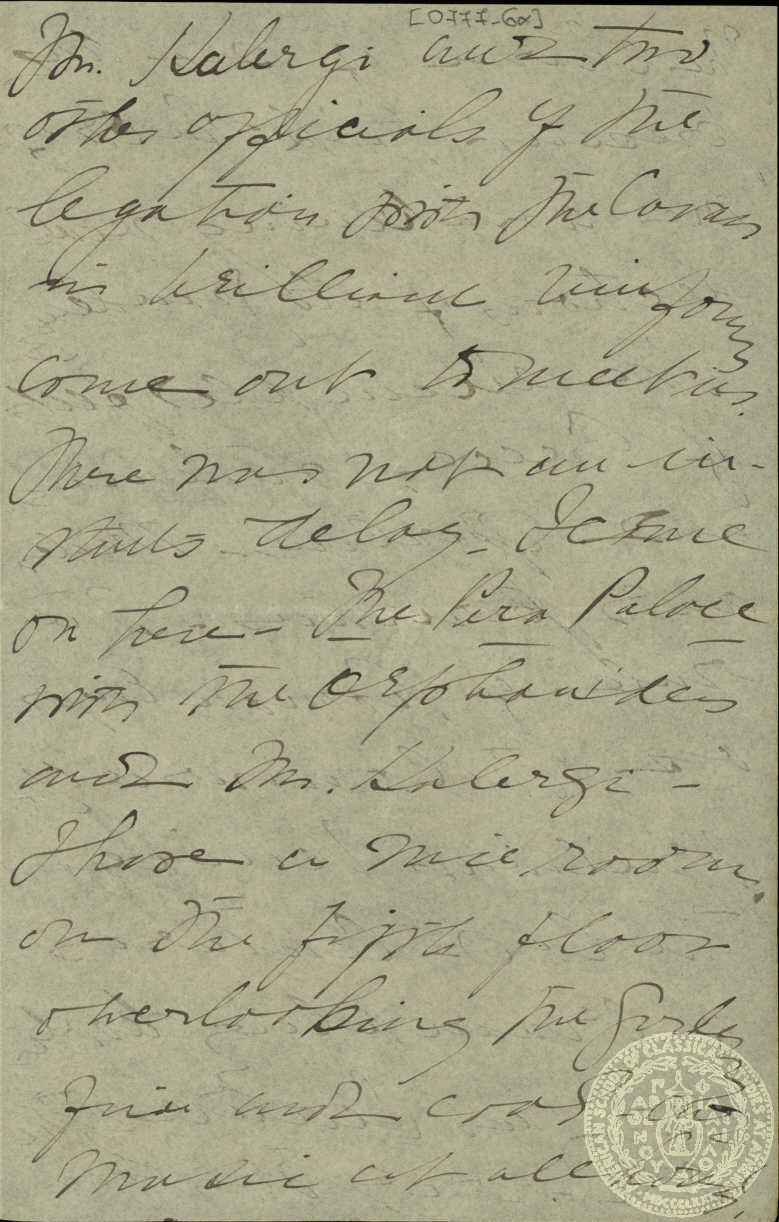 [0777-6α]
Mr. Kalergi and two
other officials of the
legation with the Cavass
in brilliant uniform
come out to meet us.
There was not an in-
stants delay - I came
on here - The Pera Palace
with the Orphanides
and Mr. Kalergi -
I have a nice room
on the fifth floor
overlooking the Garden
fine and cool -
music at all
AMERICAN SCHOOL OF CLASSICAL STUDIES AT ATHENS